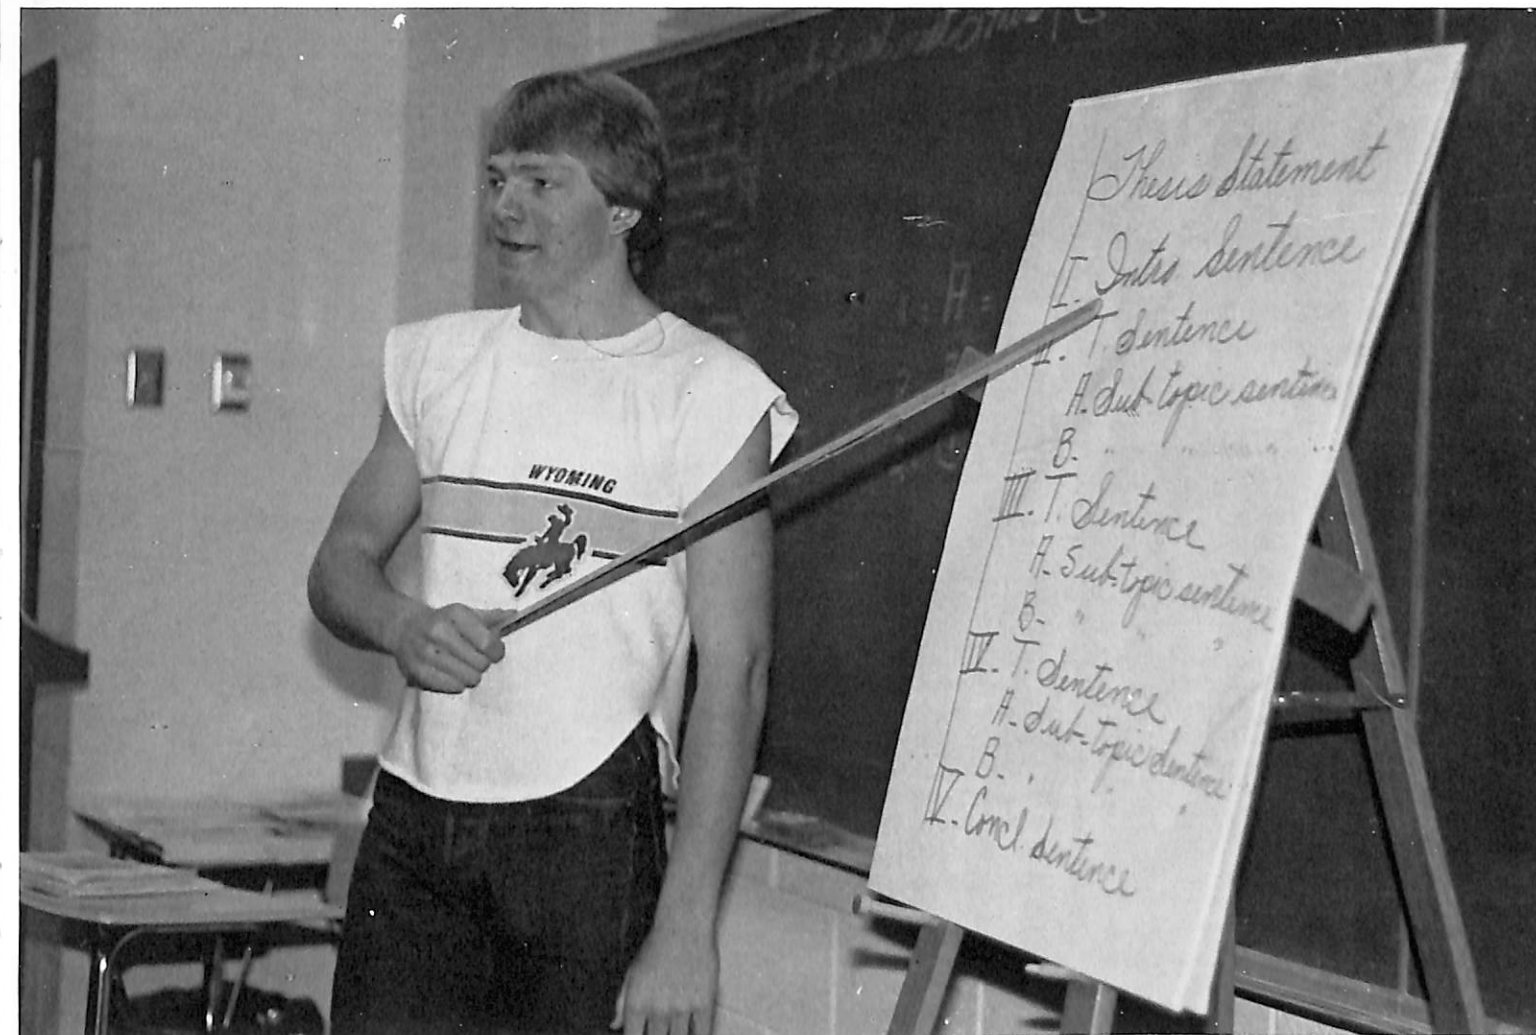 WYOMING
Thesis Statement
I. Intro Sentence
II. T. Sentence
A. Sub-topic sentence
B. " " "
III. T. Sentence
A- Sub-topic sentence
B- " " "
IV. T. Sentence
A- Sub-topic Sentence
B- " " "
V- Concl. Sentence